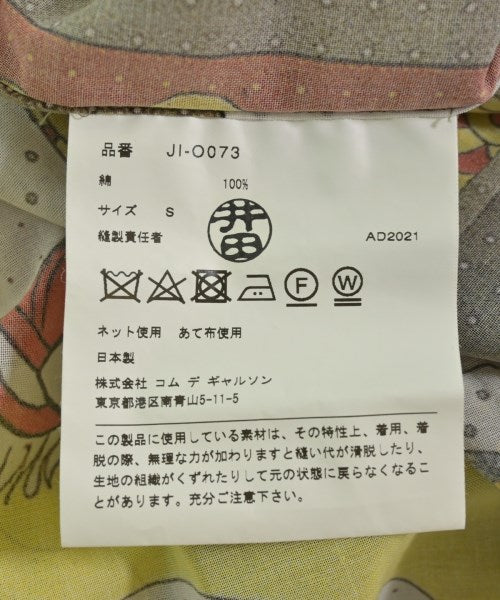 品番 JI-O073
綿 100%
サイズ S
縫製責任者 井田 AD2021
F W
ネット使用 あて布使用
日本製
株式会社 コム デ ギャルソン
東京都港区南青山5-11-5
この製品に使用している素材は、その特性上、着用、着
脱の際、無理な力が加わりますと縫い代が滑脱したり、
生地の組織がくずれたりして元の状態に戻らなくなるこ
とがあります。充分ご注意下さい。